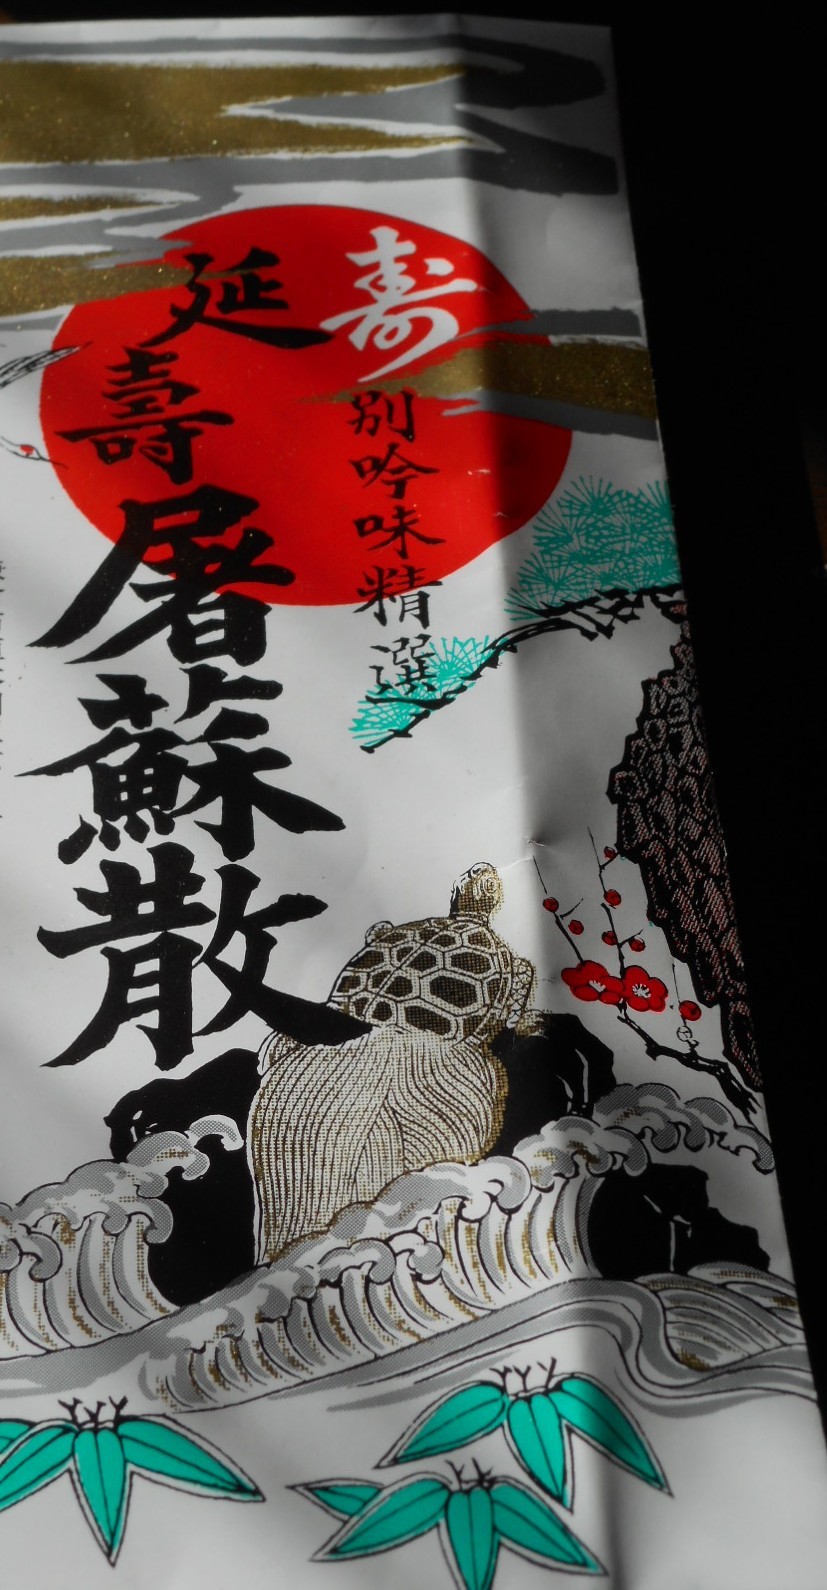 寿
別吟味精選
延壽屠蘇散